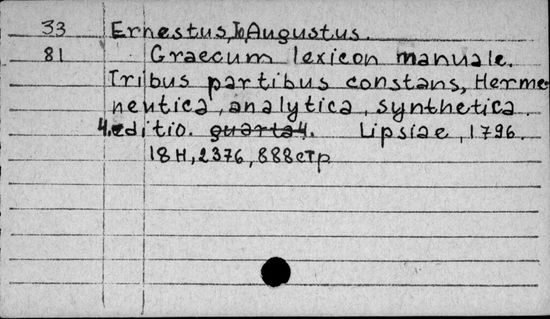 33 Ernestus, Io, Augustus.
81 Graecum lexicon manuale.
Tribus partibus constans, Herme
neutica, analytica, synthetica.
4. editio. quarta 4. Lipsiae, 1796.
18 H, 2376, 888 стр